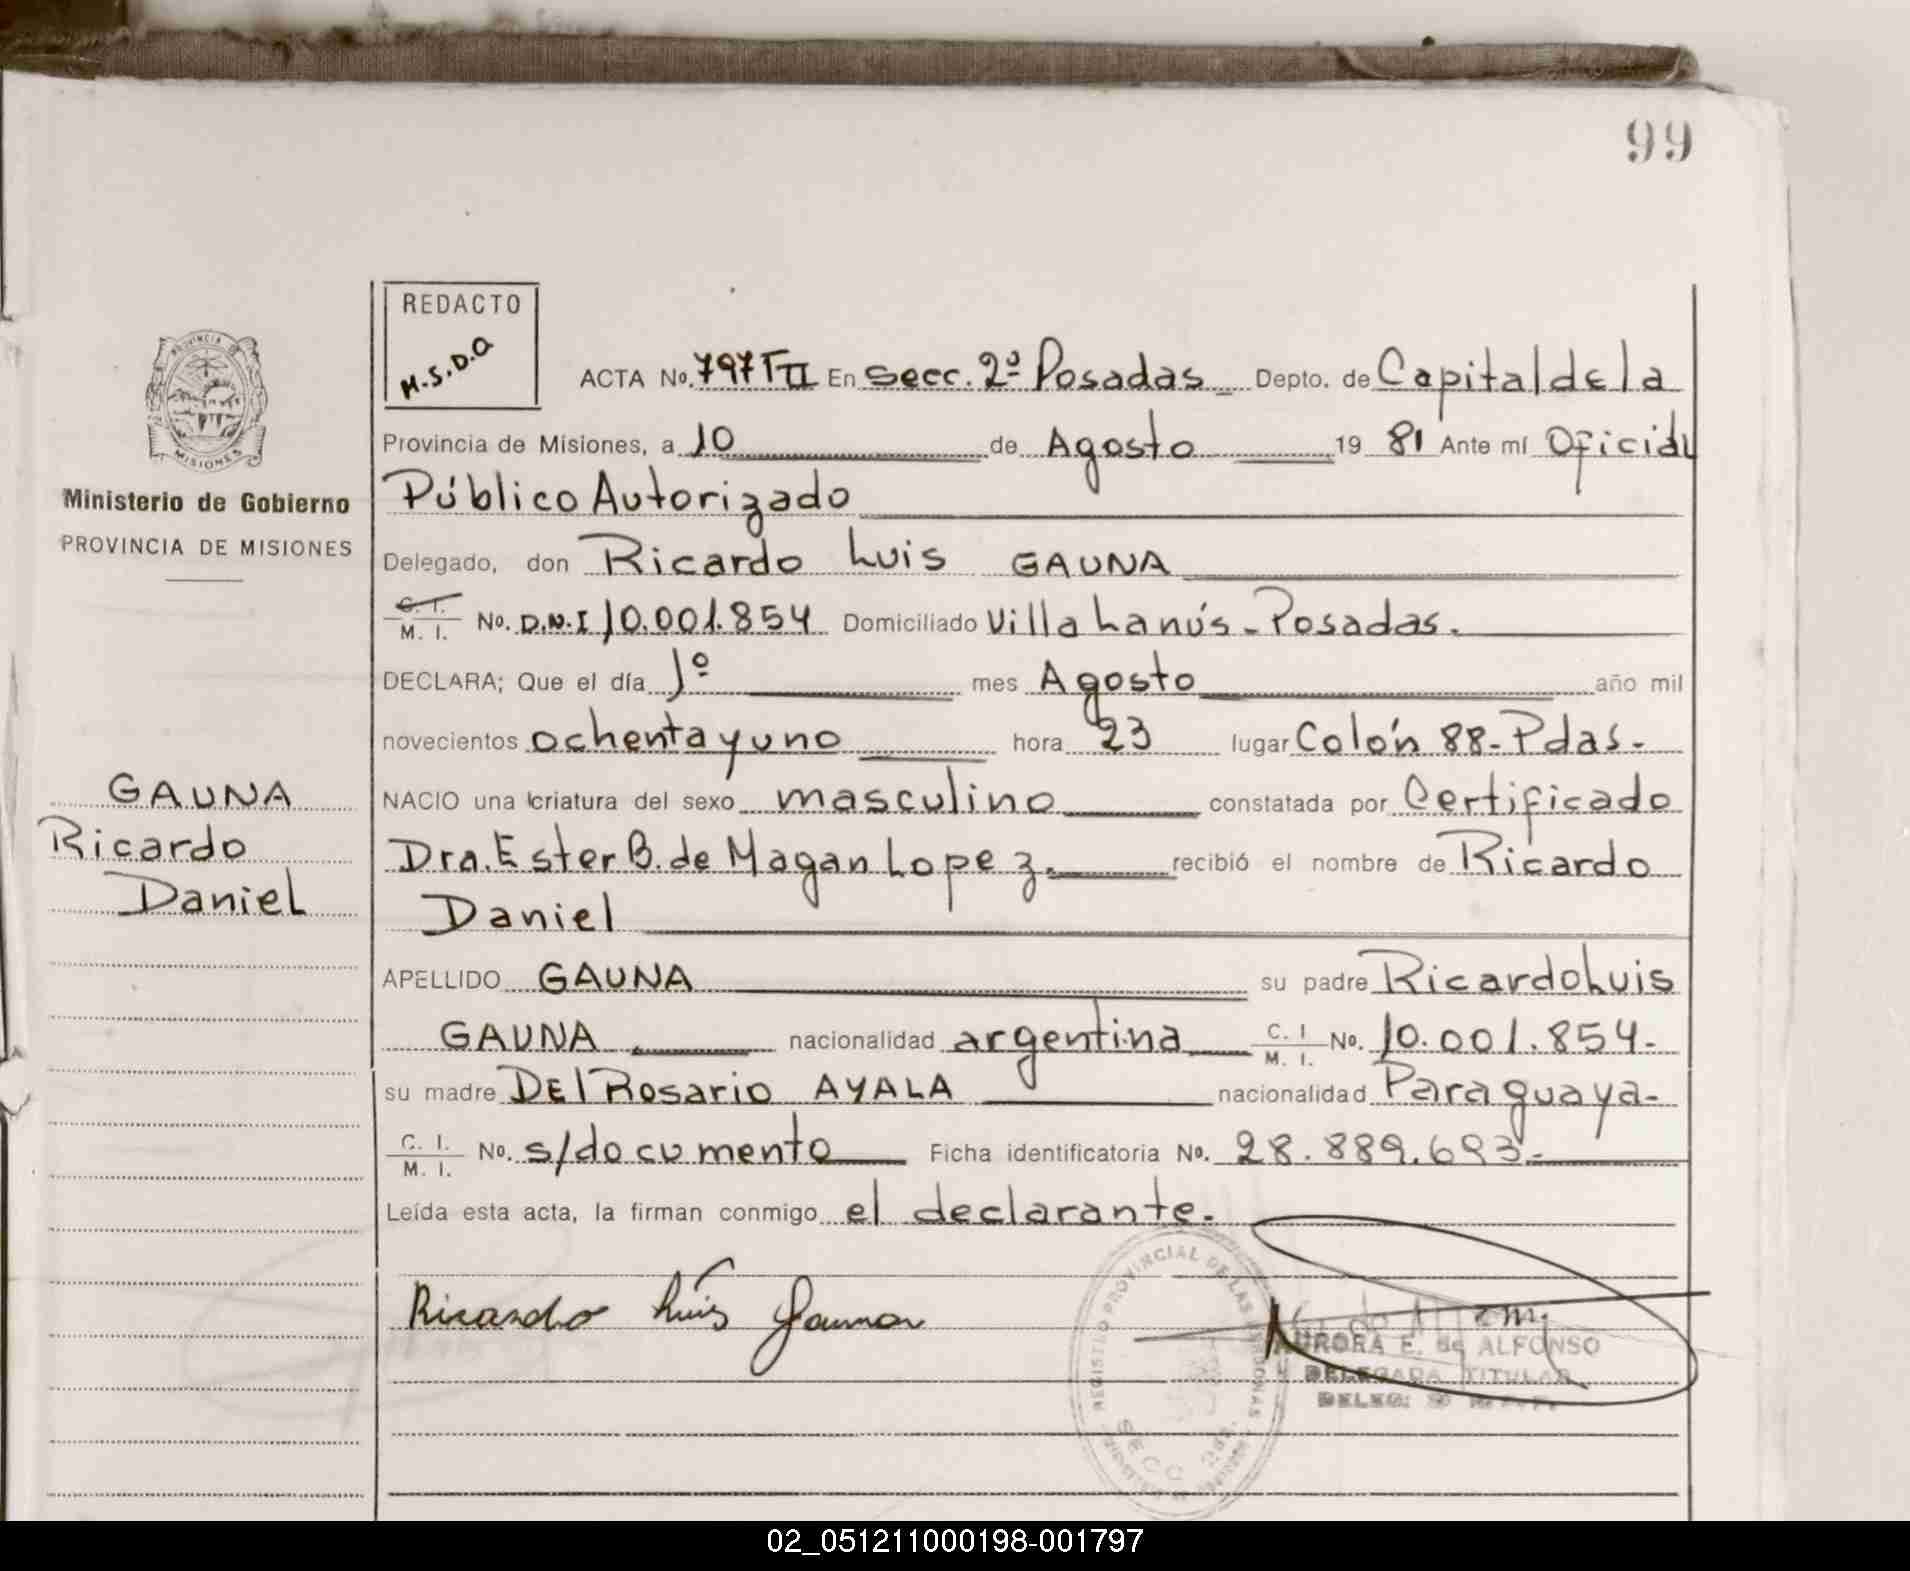 99
REDACTO
M.S.D.A
PROVINCIA DE
MISIONES
Ministerio de Gobierno
PROVINCIA DE MISIONES
GAUNA
Ricardo
Daniel
ACTA No. 797 TII En Secc. 2º Posadas Depto. de Capital de la
Provincia de Misiones, a 10 de Agosto 19 81 Ante mí Oficial
Público Autorizado
Delegado, don Ricardo Luis GAUNA
C. I.
M. I. No. D.N.I 10.001.854 Domiciliado Villa Lanús - Posadas.
DECLARA; Que el día 1º mes Agosto año mil
novecientos ochenta y uno hora 23 lugar Colón 88 - Pdas.
NACIO una criatura del sexo masculino constatada por Certificado
Dra. Ester B. de Magan Lopez. recibió el nombre de Ricardo
Daniel
APELLIDO GAUNA su padre Ricardo Luis
GAUNA nacionalidad argentina C. I
M. I. No. 10.001.854.
su madre Del Rosario AYALA nacionalidad Paraguaya-
C. I.
M. I. No. s/documento Ficha identificatoria No. 28.889.693.-
Leída esta acta, la firman conmigo el declarante.
Ricardo Luis Gauna
REGISTRO PROVINCIAL DE LAS PERSONAS
SECC 2da.
AURORA E. de ALFONSO
DELEGADA TITULAR
02_051211000198-001797